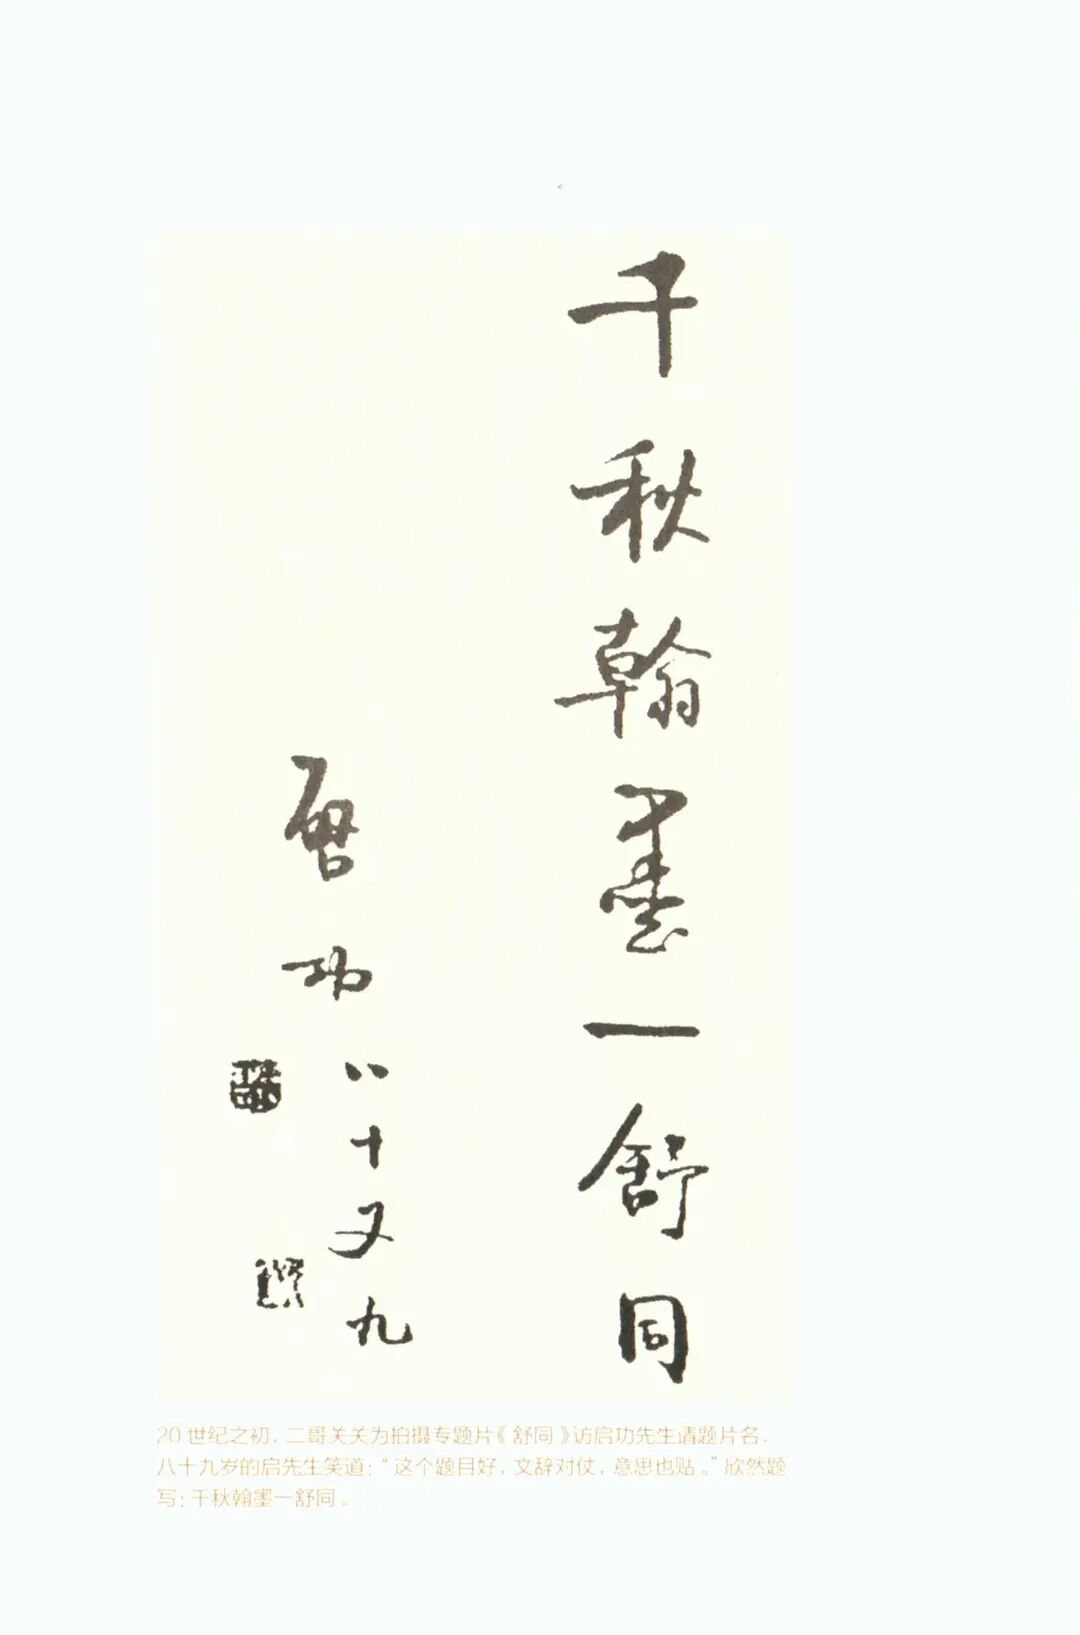 千秋翰墨一舒同
启功
八十又九
20世纪之初，二哥关关为拍摄专题片《舒同》访启功先生请题片名，
八十九岁的启先生笑道：“这个题目好，文辞对仗，意思也贴。”欣然题
写：千秋翰墨一舒同。